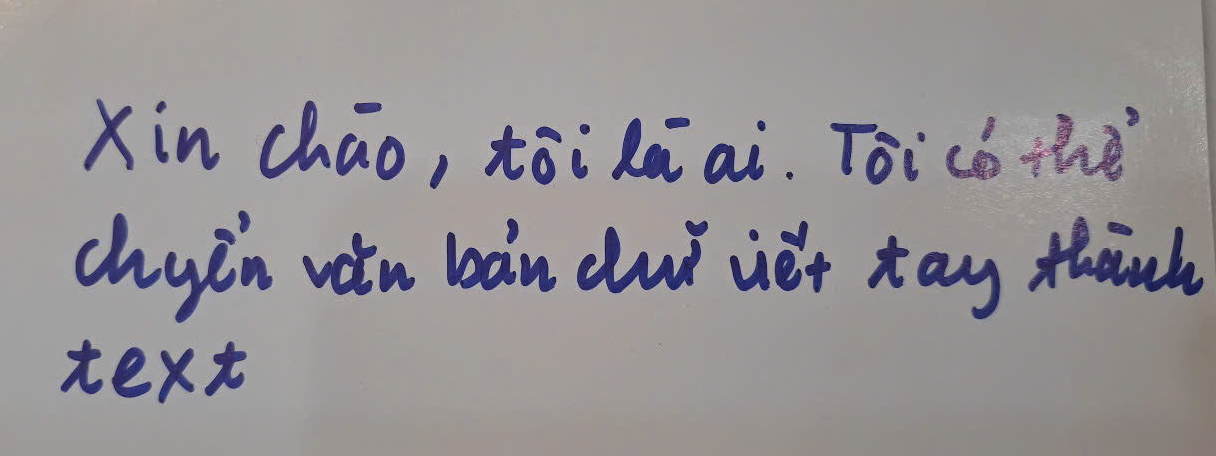 Xin chào, tôi là ai. Tôi có thể
chyển văn bản chữ viết tay thành
text